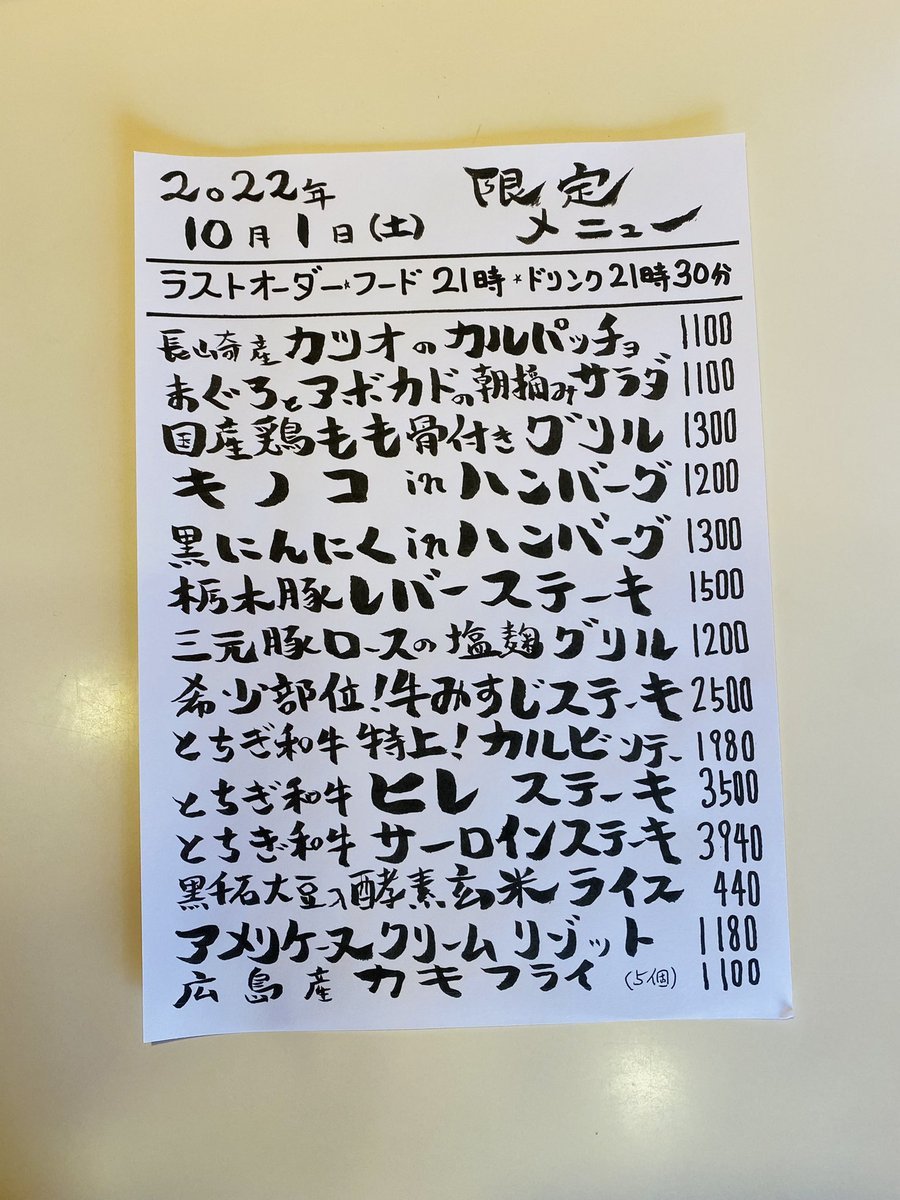 2022年 限定
10月1日(土) メニュー
ラストオーダー*フード21時*ドリンク21時30分
長崎産カツオのカルパッチョ 1100
まぐろとアボカドの朝摘みサラダ 1100
国産鶏もも骨付きグリル 1300
キノコinハンバーグ 1200
黒にんにくinハンバーグ 1300
栃木豚レバーステーキ 1500
三元豚ロースの塩麹グリル 1200
希少部位!牛みすじステーキ 2500
とちぎ和牛特上!カルビソテー 1980
とちぎ和牛ヒレステーキ 3500
とちぎ和牛サーロインステーキ 3940
黒千石大豆入酵素玄米ライス 440
アメリケーヌクリームリゾット 1180
広島産カキフライ(5個) 1100